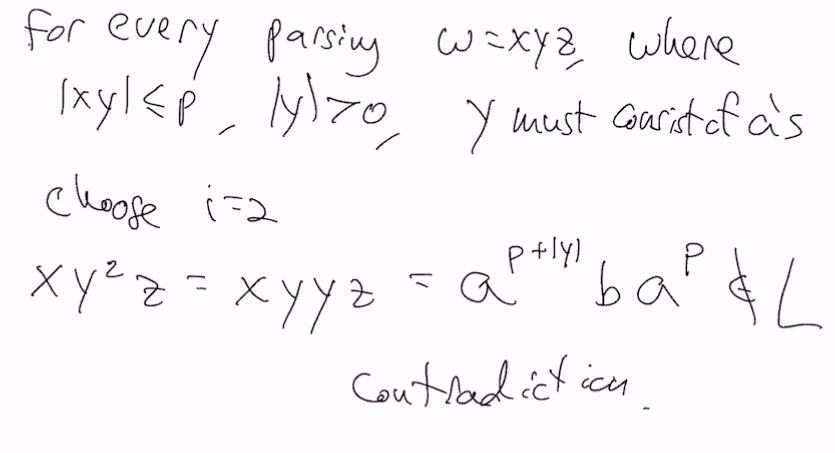 for every parsing w=xyz, where
|xy|≤p, |y|>0, y must consist of a's
choose i=2
xy²z = xyyz = a^{p+|y|} b a^p ∉ L
Contradiction.